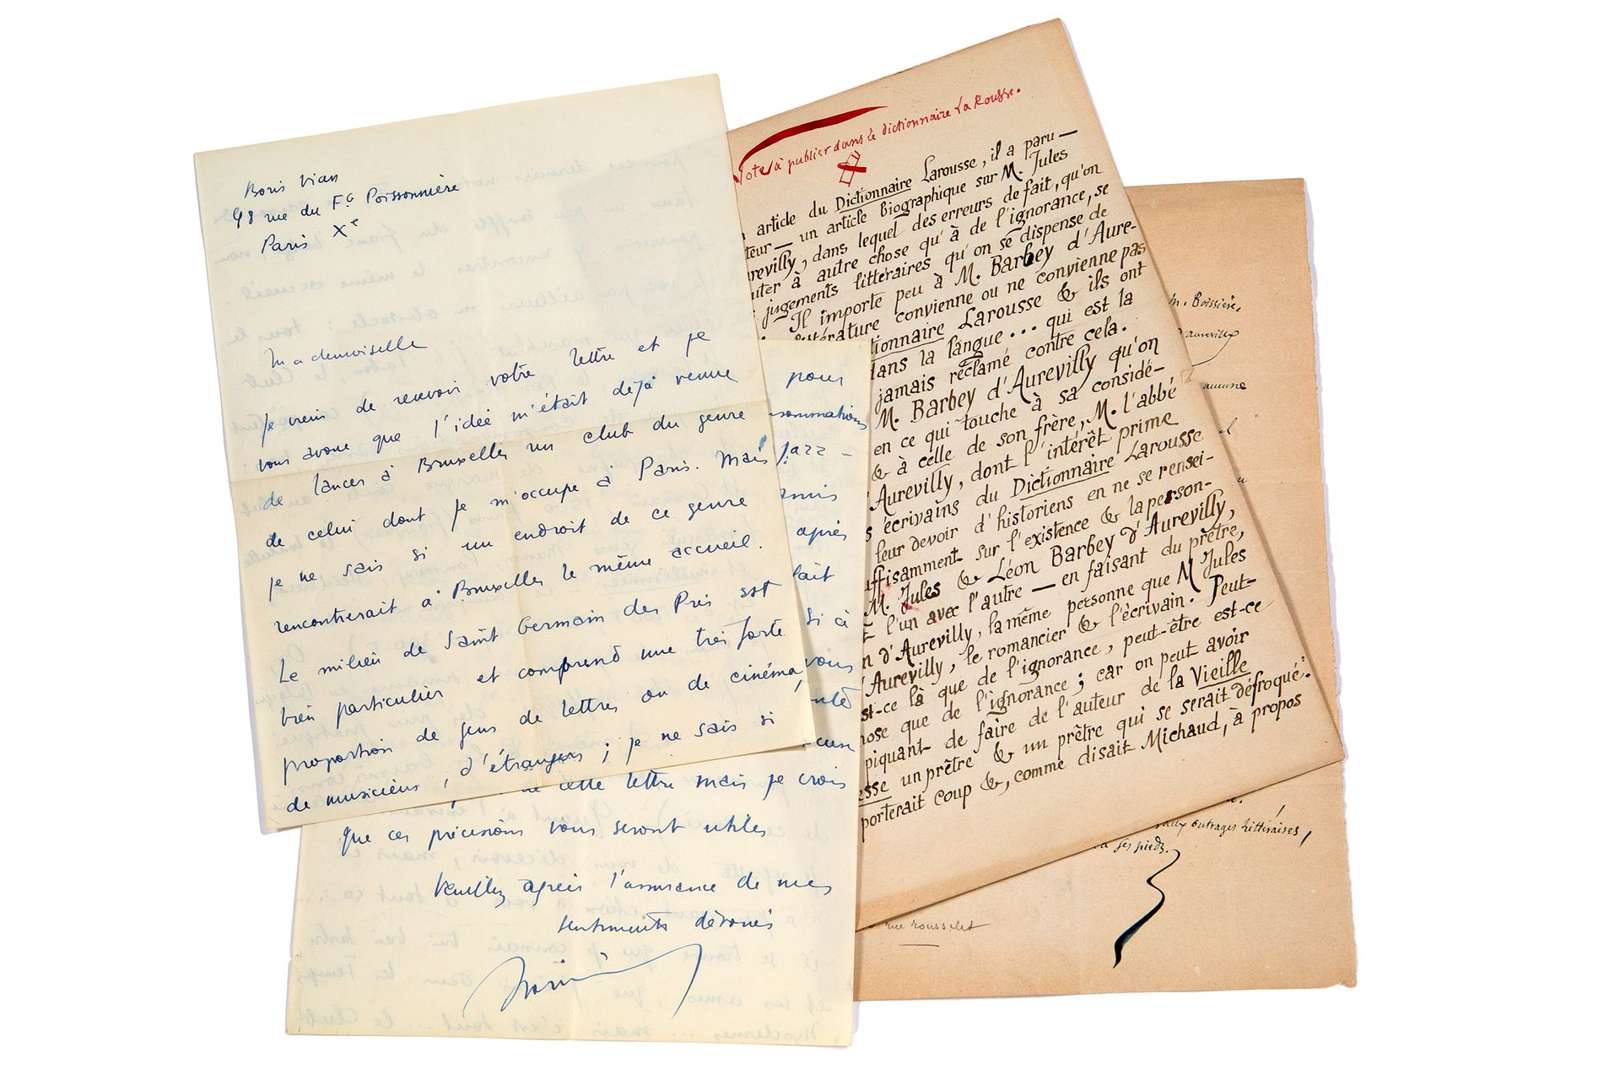 Boris Vian
98 rue du Fg Poissonnière
Paris Xe
Mademoiselle
Je viens de recevoir votre lettre et je
vous avoue que l'idée m'était déjà venue
de lancer à Bruxelles un club du genre
de celui dont je m'occupe à Paris. Mais
je ne sais si un endroit de ce genre
rencontrerait à Bruxelles le même accueil.
Le milieu de Saint Germain des Prés est
bien particulier et comprend une très forte
proportion de gens de lettres ou de cinéma,
de musiciens, d'étrangers ; je ne sais si
pour
Jazz-
après
si à
vous
cette lettre mais je crois
que ces précisions vous seront utiles
Veuillez agréer l'assurance de mes
sentiments dévoués
à publier dans le dictionnaire La Rousse.
article du Dictionnaire Larousse, il a paru —
— un article Biographique sur M. Jules
, dans lequel des erreurs de fait, qu'on
à autre chose qu'à de l'ignorance, se
jugements littéraires qu'on se dispense de
Il importe peu à M. Barbey d'Aure-
convienne ou ne convienne pas
Larousse & ils ont
dans la langue... qui est la
jamais réclamé contre cela.
M. Barbey d'Aurevilly qu'on
en ce qui touche à sa considé-
& à celle de son frère, M. l'abbé
d'Aurevilly, dont l'intérêt prime
écrivains du Dictionnaire Larousse
leur devoir d'historiens en ne se rensei-
sur l'existence & la person-
M. Jules & Léon Barbey d'Aurevilly,
l'un avec l'autre — en faisant du prêtre,
d'Aurevilly, la même personne que M Jules
d'Aurevilly, le romancier & l'écrivain. Peut-
là que de l'ignorance, peut-être est-ce
que de l'ignorance ; car on peut avoir
piquant de faire de l'auteur de la Vieille
un prêtre & un prêtre qui se serait défroqué.
porterait coup &, comme disait Michaud, à propos
Boissière.
d'aurevilly
aucune
outrages littéraires,
ses pieds.
rue rousselet